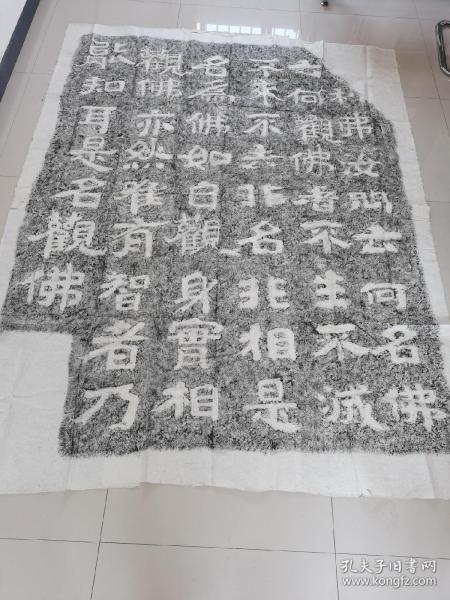 利弗汝問云何名佛
云何觀佛者不生不滅
不来不去非名非相是
名為佛如自觀身實相
觀佛亦然唯有智者乃
能知耳是名觀佛
孔夫子旧书网
www.kongfz.com